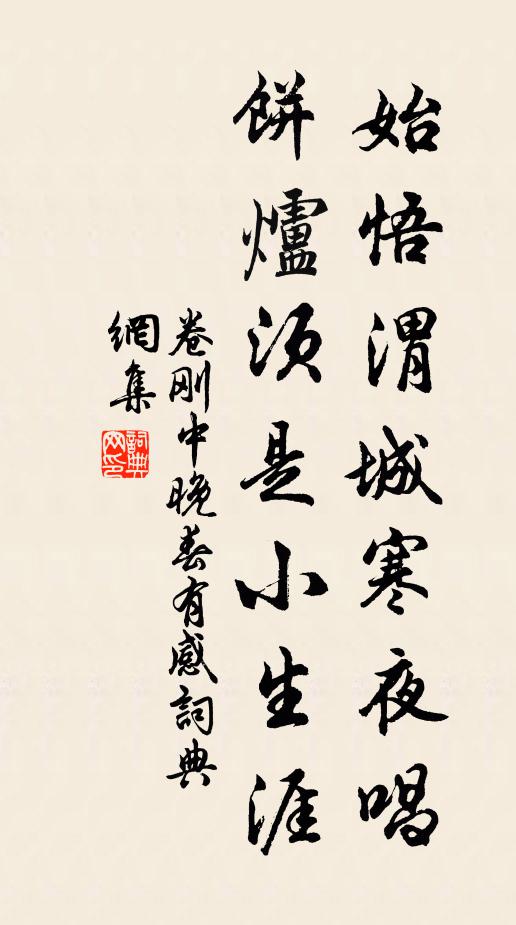 始悟渭城寒夜唱
餅爐須是小生涯
卷剛中晚春有感詞典
網集
詞典
网印